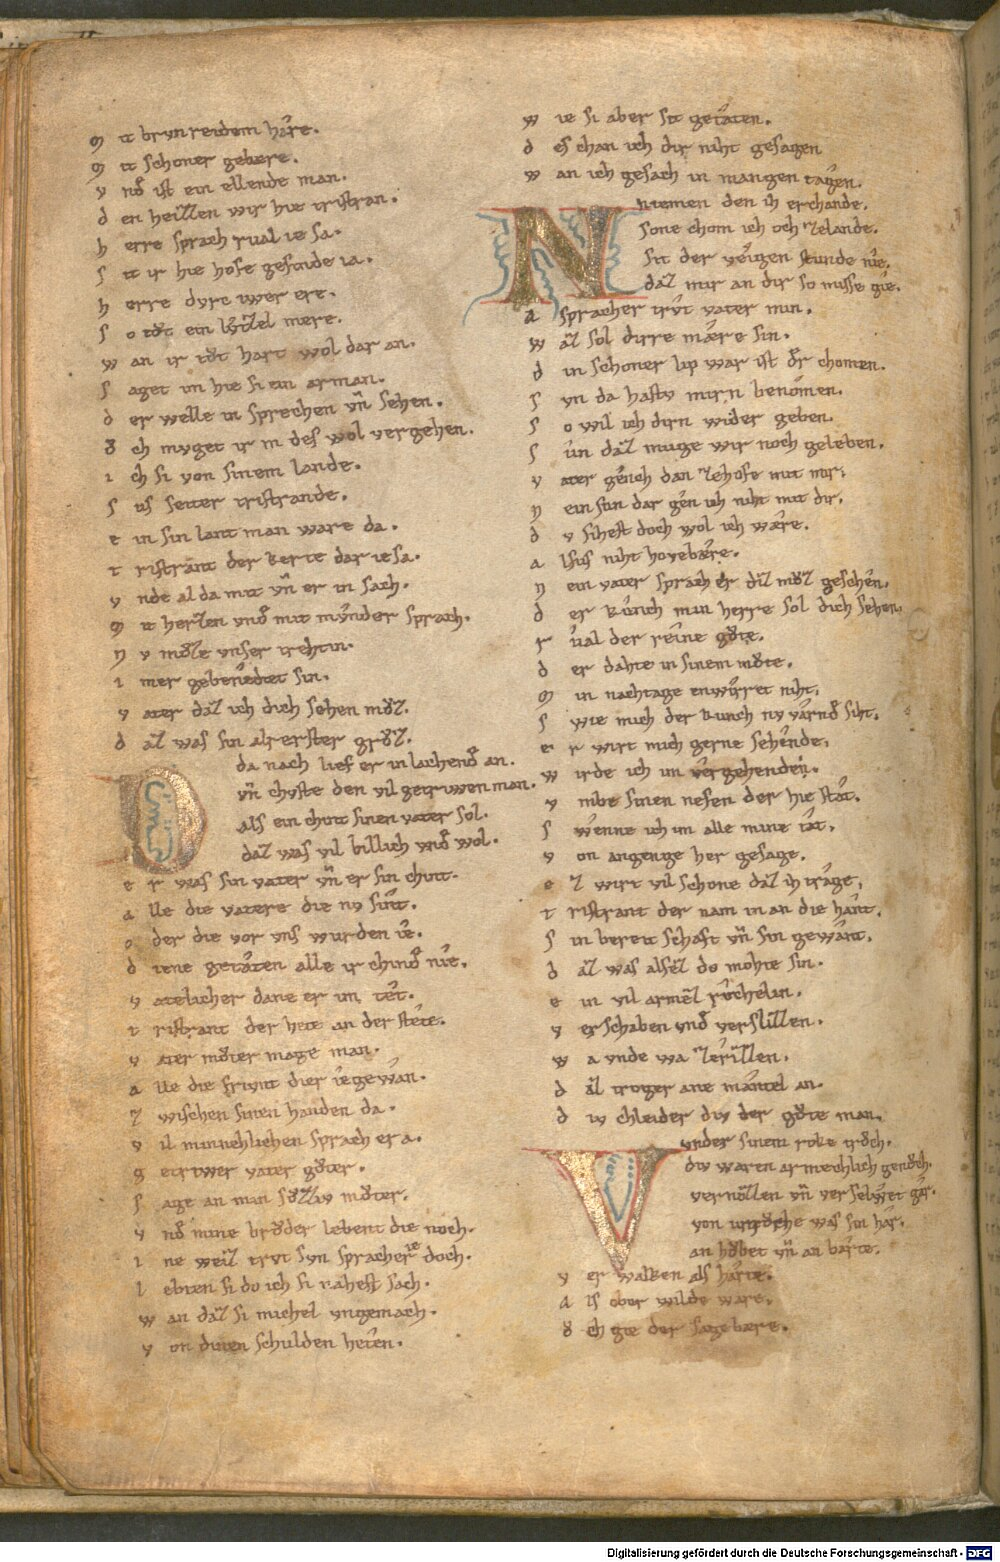 m it brvnreidem hare.
m it schoner gebære.
v nd ist ein ellende man.
d en heizzen wir hie tristran.
h erre sprach rual ie sa.
s it ir hie hofe gesinde ia.
h erre dvrc iwer ere.
s o tvͦt ein lvtzel mere.
w an ir tvͦt hart wol dar an.
s aget im hie si ein arman.
d er welle in sprechen vn̄ sehen.
oͮ ch mvget ir im des wol veriehen.
i ch si von sinem lande.
s us seiter tristrande.
e in sin lant man ware da.
t ristrant der kerte dar iesa.
v nde al da mit vn̄ er in sach.
m it herzen vnd mit mvnder sprach.
n v mvͦze vnser trehtin.
i mer gebenediet sin.
v ater daz ich dich sehen mvͦz.
d az was sin alrerster grvͦz.
D da nach lief er in lachend an.
vn̄ chvste den vil getruwen man.
als ein chint sinen vater sol.
daz was vil billich vnd wol.
e r was sin vater vn̄ er sin chint.
a lle die vatere die nv sint.
o der die vor vns wurden ie.
d iene getaten alle ir chind nie.
v atelicher dane er im tet.
t ristrant der hete an der stete.
v ater mvͦter mage man.
a lle die frivnt dier ie gewan.
z wischen sinen handen da.
v il minnchlichen sprach er a.
g etrwer vater gvͦter.
s age an min svͦzziv mvͦter.
v nd mine brvͦder lebent die noch.
i ne weiz trvt svn sprach er ie doch.
l ebten si do ich si nahest sach.
w an daz si michel vngemach.
v on dinen schulden heten.
w ie si aber sit getaten.
d es chan ich dir niht gesagen
w an ich gesach in mangen tagen.
N niemen den ih erchande.
sone chom ich och ze lande.
sit der veigen stunde nie.
daz mir an dir so misse gie.
a sprach er trvt vater min.
w az sol dirre mære sin.
d in schoner lip war ist der chomen.
s vn da hastv mirn benomen.
s o wil ich dirn wider geben.
s un daz muge wir noch geleben.
v ater gench dan ze hofe mit mir.
n ein sun dar gen ich niht mit dir.
d v sihest doch wol ich wære.
a lsus niht hovebære.
n ein vater sprach er diz mvͦz geschen.
d er kunich min herre sol dich sehen.
r ual der reine gvͦte.
d er dahte in sinem mvͦte.
m in nachtage enwirret niht.
s wie mich der kunch nv varnd siht.
e r wirt mich gerne sehende.
w irde ich im vergehenden.
v mbe sinen nefen der hie stat.
s wenne ich im alle mine tat.
v on angenge her gesage.
e z wirt vil schone daz ih trage.
t ristrant der nam in an die hant.
s in bereit schaft vn̄ sin gewant.
d az was alsez do mohte sin.
e in vil armez rochelin.
v erschaben vnd verslizzen.
w a vnde wa zerizzen.
d az troger ane mantel an.
d iv chleider div der gvͦte man.
V vnder sinem roke trvͦch.
div waren armechlich genvͦch.
vernozzen vn̄ verselwet gar.
von vnrvͦche was sin har.
an hovbet vn̄ an barte.
v er walken als harte.
a ls ober wilde ware.
oͮ ch gie der sagebære.
Digitalisierung gefördert durch die Deutsche Forschungsgemeinschaft - DFG